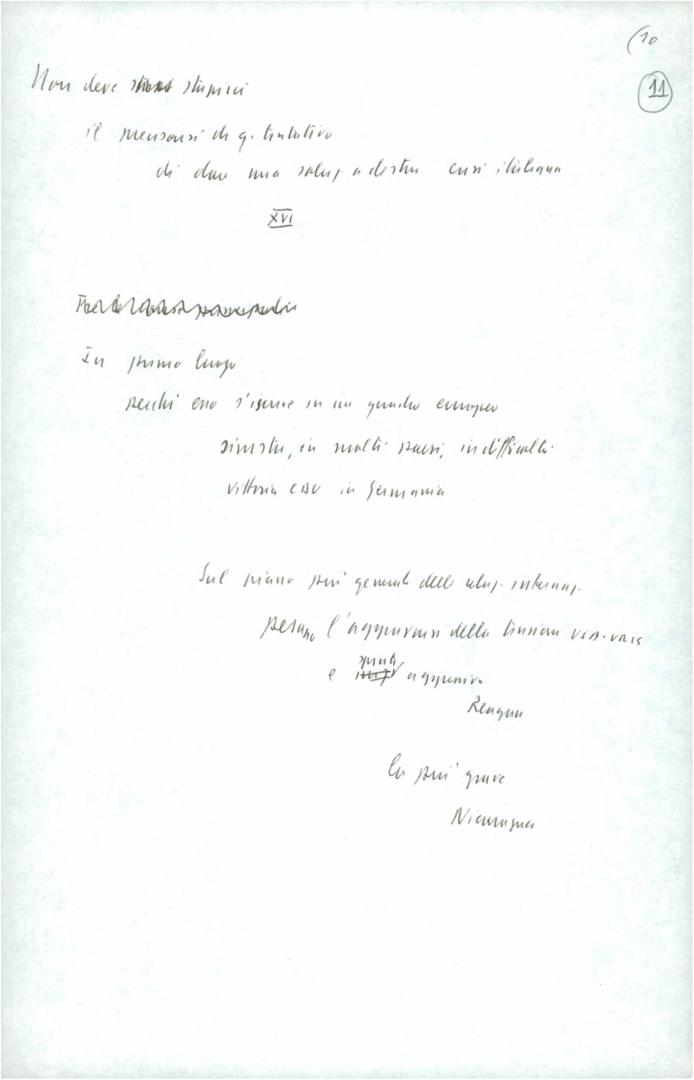 (10
11
Non deve stupirci
il mersarsi di q. tentativo
di dare una soluz. a destra crisi italiana
XVI
In primo luogo
perché esso s'iscrive in un quadro europeo
sinistra, in molti paesi, in difficoltà
vittoria CDU in Germania
Sul piano più generale delle relaz. internaz.
pesano l'aggravarsi della tensione USA-URSS
e spinta aggressiva
Reagan
la più grave
Nicaragua